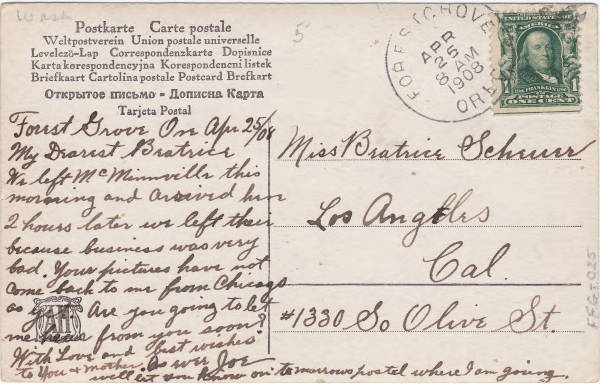 Wash
5
Postkarte Carte postale
Weltpostverein Union postale universelle
Levelező-Lap Correspondenzkarte Dopisnice
Karta korespondencyjna Korespondencni listek
Briefkaart Cartolina postale Postcard Brefkort
Открытое письмо - Дописна Карта
Tarjeta Postal
FOREST GROVE
APR
25
8 AM
1908
OREG
UNITED STATES OF AMERICA
1 1
POSTAGE
ONE CENT
Forest Grove On Apr 25/08
My Dearest Beatrice
We left McMinnville this
morning and arrived here
2 hours later we left their
because business was very
bad. Your pictures have not
come back to me from Chicago
as yet. Are you going to let
me hear from you soon?
With Love and best wishes
to You & mother. As ever Joe
will let you know on tomorrows postel where I am going.
Miss Beatrice Scheuer
Los Angeles
Cal.
#1330 So Olive St.
FFG-025